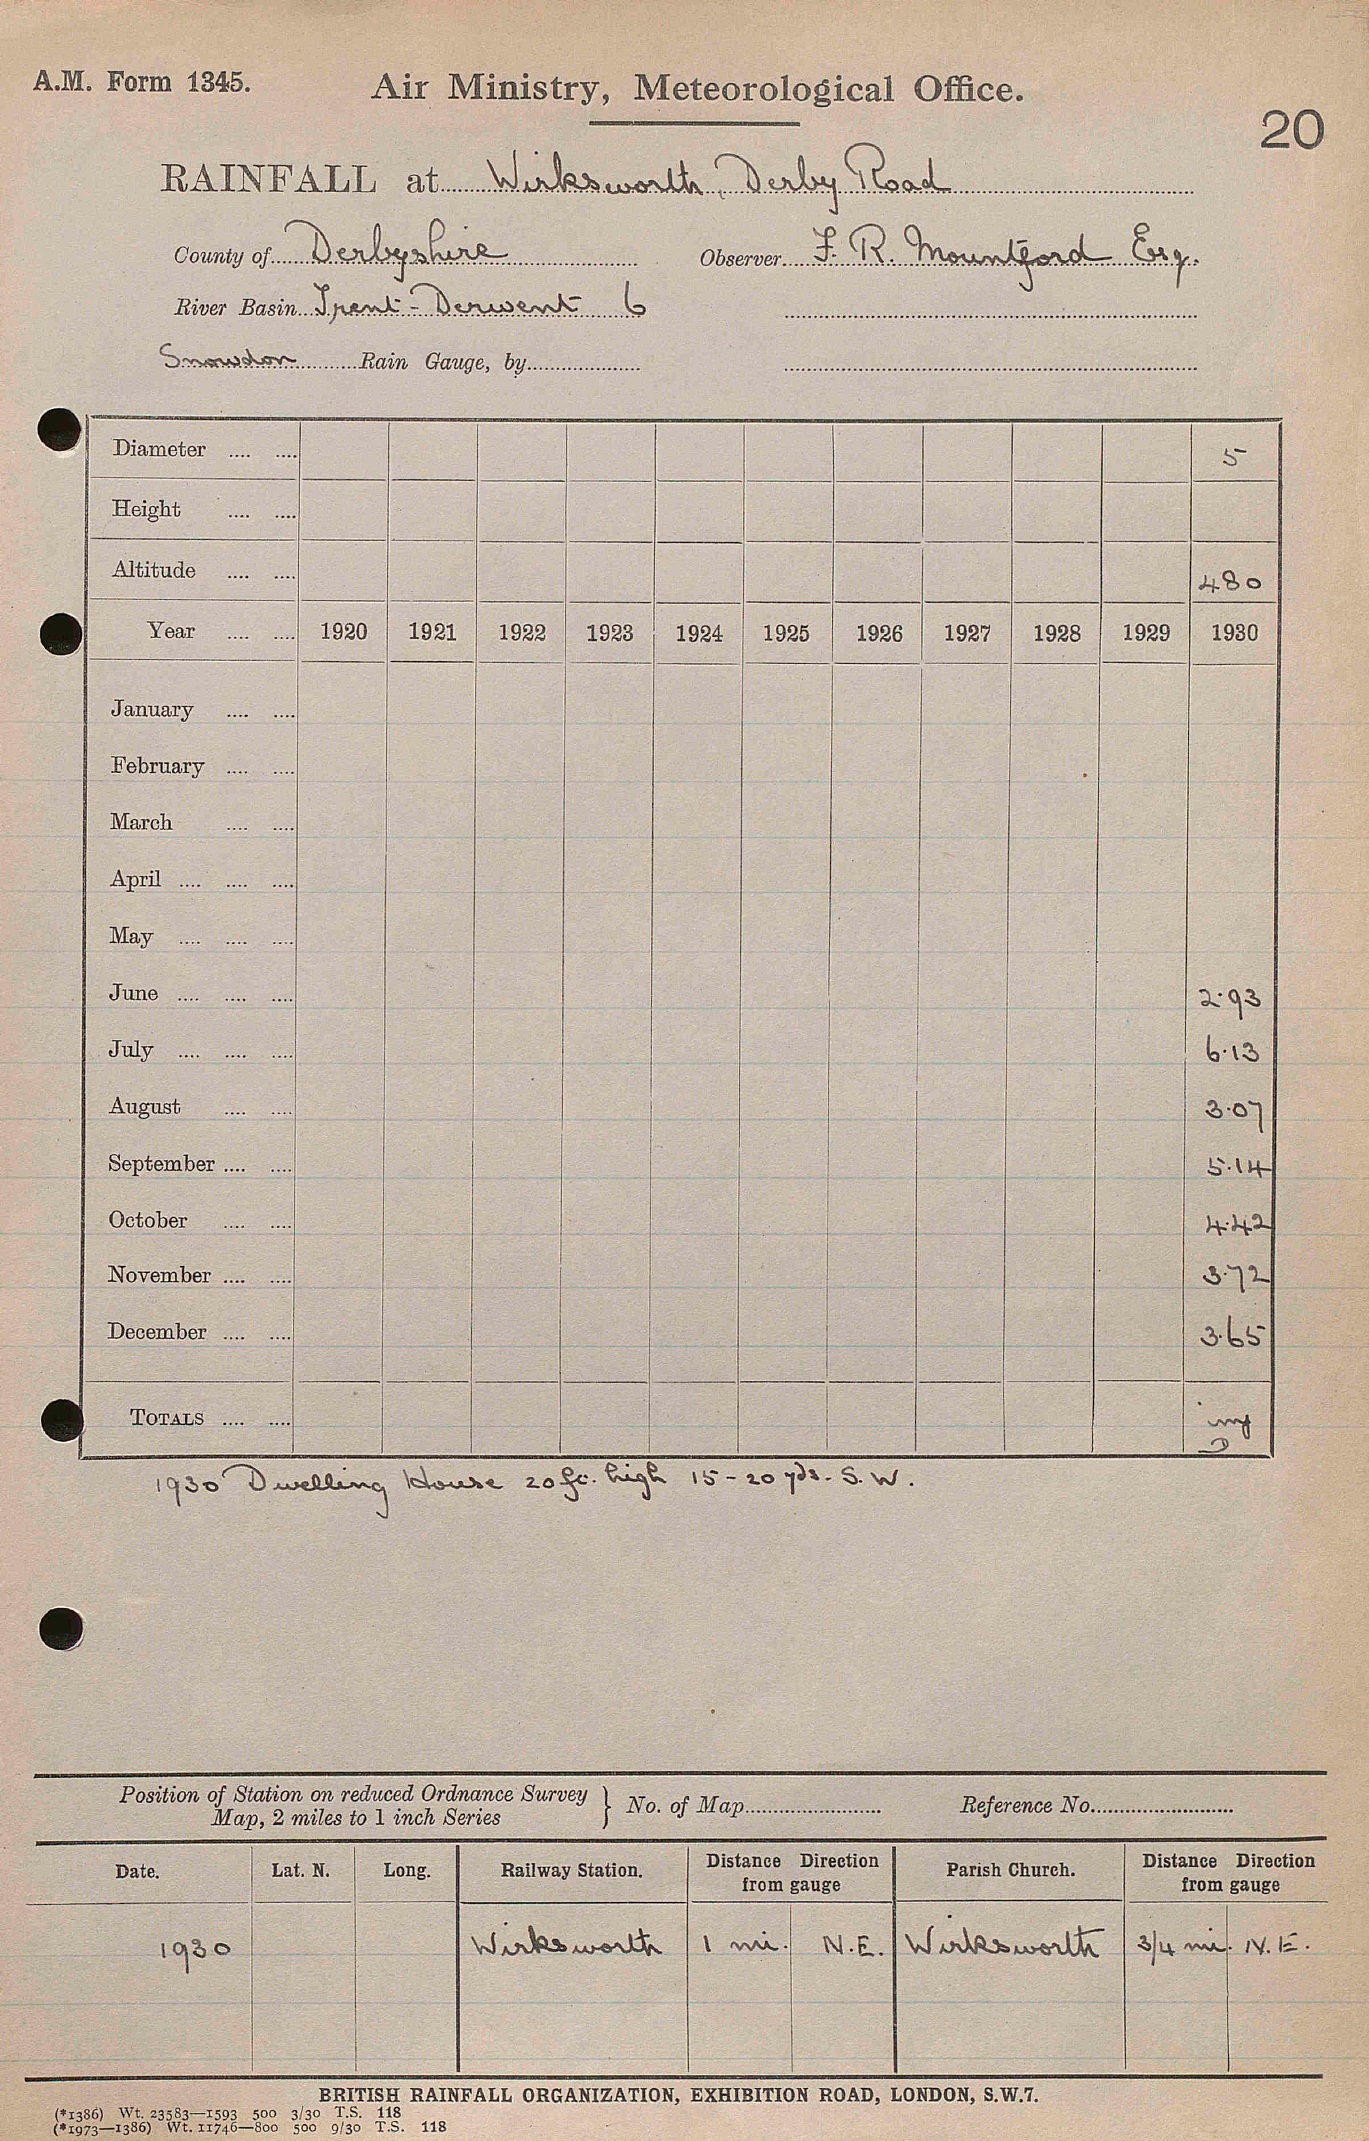 A.M. Form 1345.
Air Ministry, Meteorological Office.
20
RAINFALL at Wirksworth, Derby Road
County of Derbyshire Observer F. R. Mountford Esq.
River Basin Trent - Derwent 6
Snowdon Rain Gauge, by
Diameter .... .... 5
Height .... ....
Altitude .... .... 480
Year .... .... 1920 1921 1922 1923 1924 1925 1926 1927 1928 1929 1930
January .... ....
February .... ....
March .... ....
April .... .... ....
May .... .... ....
June .... .... .... 2.93
July .... .... .... 6.13
August .... .... 3.07
September .... .... 5.14
October .... .... 4.42
November .... .... 3.72
December .... .... 3.65
TOTALS .... ....
D
1930 Dwelling House 20 ft. high 15 - 20 yds. S. W.
Position of Station on reduced Ordnance Survey
Map, 2 miles to 1 inch Series } No. of Map Reference No.
Date. Lat. N. Long. Railway Station. Distance Direction from gauge Parish Church. Distance Direction from gauge
1930 Wirksworth 1 mi. N.E. Wirksworth 3/4 mi. N.E.
BRITISH RAINFALL ORGANIZATION, EXHIBITION ROAD, LONDON, S.W.7.
(*1386) Wt. 23583—1593 500 3/30 T.S. 118
(*1973—1386) Wt. 11746—800 500 9/30 T.S. 118